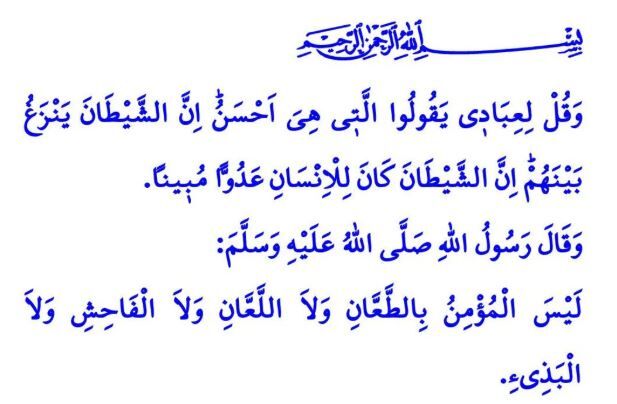 بِسْمِ اللهِ الرَّحْمٰنِ الرَّحِيمِ
وَقُلْ لِعِبَاد۪ى يَقُولُوا الَّت۪ى هِىَ اَحْسَنُۜ اِنَّ الشَّيْطَانَ يَنْزَغُ
بَيْنَهُمْۜ اِنَّ الشَّيْطَانَ كَانَ لِلْاِنْسَانِ عَدُوًّا مُب۪ينًا.
وَقَالَ رَسُولُ اللهِ صَلَّى اللهُ عَلَيْهِ وَسَلَّمَ:
لَيْسَ الْمُؤْمِنُ بِالطَّعَّانِ وَلاَ اللَّعَّانِ وَلاَ الْفَاحِشِ وَلاَ
الْبَذِىءِ.